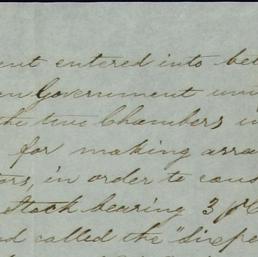 ent entered into bet
en Government un
the two Chambers in
for making arra
tors, in order to cons
Stock bearing 3 p C
d called the "